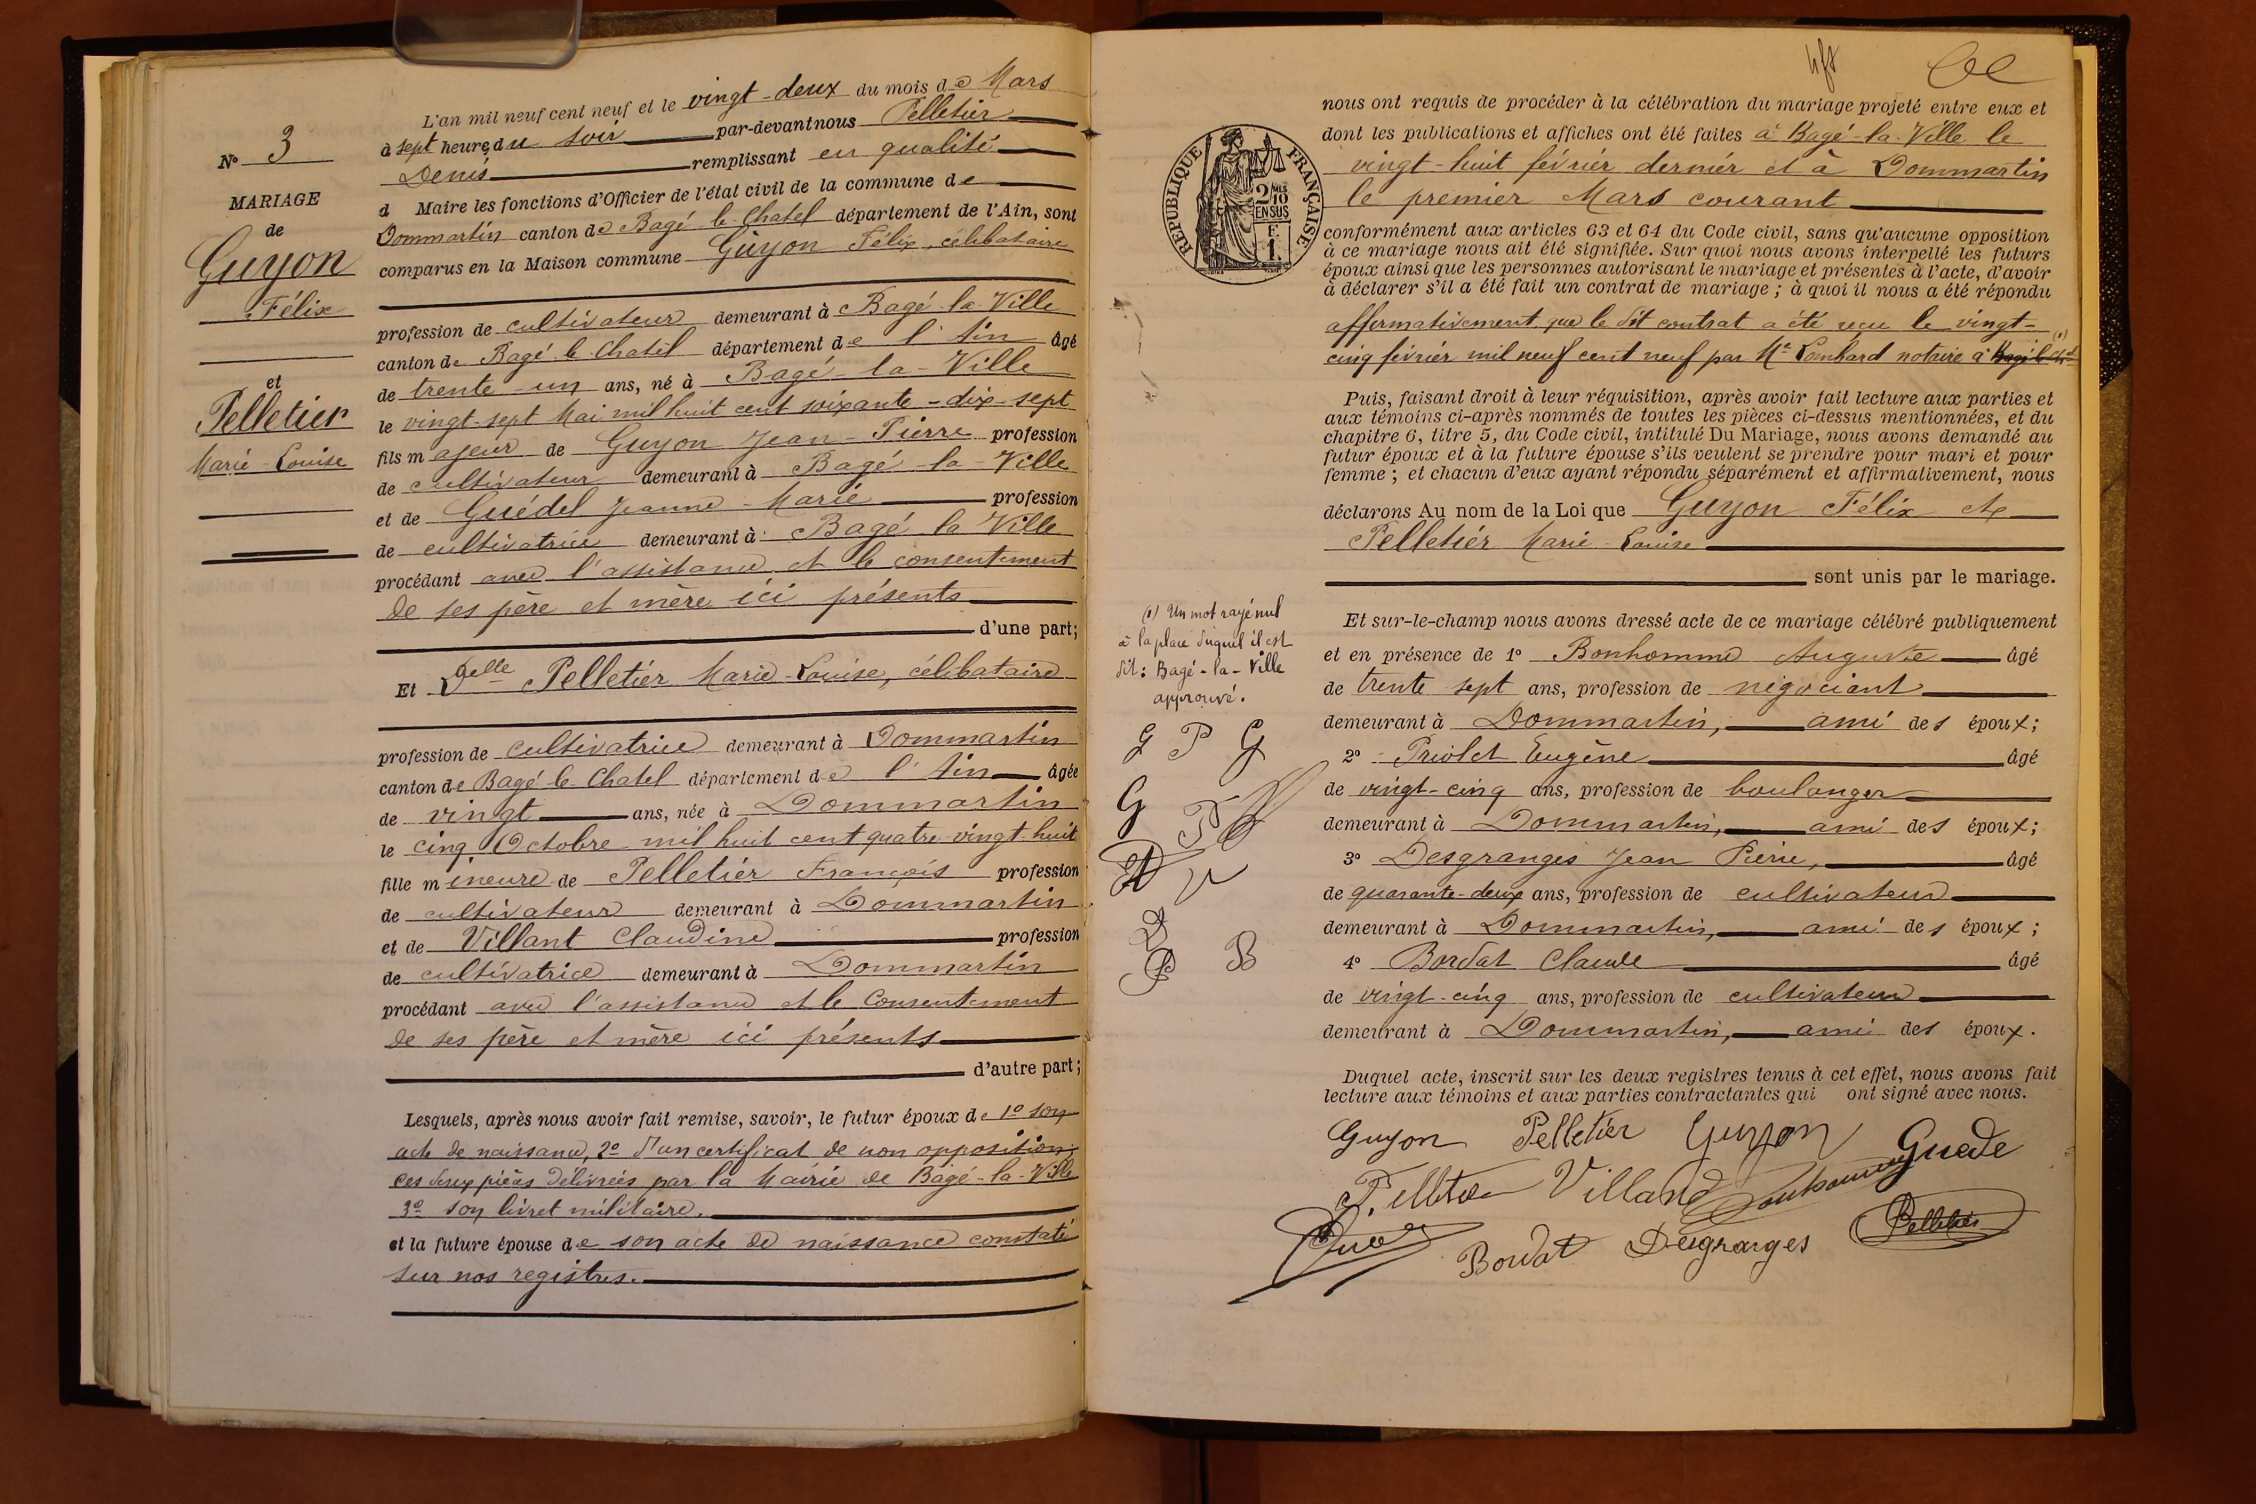 N° 3
MARIAGE
de
Guyon
Félix
et
Pelletier
Marie-Louise
L'an mil neuf cent neuf et le vingt-deux du mois de Mars
à sept heures du soir par-devant nous Pelletier
Denis remplissant en qualité
d Maire les fonctions d'Officier de l'état civil de la commune de
Dommartin canton de Bagé-le-Chatel département de l'Ain, sont
comparus en la Maison commune Guyon Félix, célibataire
profession de cultivateur demeurant à Bagé-la-Ville
canton de Bagé-le-Chatel département de l'Ain âgé
de trente-un ans, né à Bagé-la-Ville
le vingt-sept Mai mil huit cent soixante-dix-sept
fils majeur de Guyon Jean-Pierre profession
de cultivateur demeurant à Bagé-la-Ville
et de Guédel Jeanne-Marie profession
de cultivatrice demeurant à Bagé la Ville
procédant avec l'assistance et le consentement
de ses père et mère ici présents
d'une part;
Et Delle Pelletier Marie-Louise, célibataire
profession de cultivatrice demeurant à Dommartin
canton de Bagé-le-Chatel département de l'Ain âgée
de vingt ans, née à Dommartin
le cinq Octobre mil huit cent quatre-vingt-huit
fille mineure de Pelletier François profession
de cultivateur demeurant à Dommartin
et de Villant Claudine profession
de cultivatrice demeurant à Dommartin
procédant avec l'assistance et le consentement
de ses père et mère ici présents
d'autre part;
Lesquels, après nous avoir fait remise, savoir, le futur époux de 1° son
acte de naissance, 2° d'un certificat de non opposition,
ces deux pièces délivrées par la Mairie de Bagé-la-Ville
3° son livret militaire.
et la future épouse de son acte de naissance constaté
sur nos registres.
nous ont requis de procéder à la célébration du mariage projeté entre eux et
dont les publications et affiches ont été faites à Bagé-la-Ville le
vingt-huit février dernier et à Dommartin
le premier Mars courant
RÉPUBLIQUE FRANÇAISE
2 MES 10
EN SUS
F.
1.
conformément aux articles 63 et 64 du Code civil, sans qu'aucune opposition
à ce mariage nous ait été signifiée. Sur quoi nous avons interpellé les futurs
époux ainsi que les personnes autorisant le mariage et présentes à l'acte, d'avoir
à déclarer s'il a été fait un contrat de mariage; à quoi il nous a été répondu
affirmativement que le dit contrat a été reçu le vingt-
cinq février mil neuf cent neuf par Me Lombard notaire à Bagé-le-Chel (1)
Puis, faisant droit à leur réquisition, après avoir fait lecture aux parties et
aux témoins ci-après nommés de toutes les pièces ci-dessus mentionnées, et du
chapitre 6, titre 5, du Code civil, intitulé Du Mariage, nous avons demandé au
futur époux et à la future épouse s'ils veulent se prendre pour mari et pour
femme; et chacun d'eux ayant répondu séparément et affirmativement, nous
déclarons Au nom de la Loi que Guyon Félix et
Pelletier Marie-Louise
sont unis par le mariage.
(1) Un mot rayé nul
à la place duquel il est
dit: Bagé-la-Ville
approuvé.
G P G
G
B
Et sur-le-champ nous avons dressé acte de ce mariage célébré publiquement
et en présence de 1° Bonhomme Auguste âgé
de trente sept ans, profession de négociant
demeurant à Dommartin, ami des époux;
2° Priolet Eugène âgé
de vingt-cinq ans, profession de boulanger
demeurant à Dommartin, ami des époux;
3° Desgranges Jean Pierre, âgé
de quarante-deux ans, profession de cultivateur
demeurant à Dommartin, ami des époux;
4° Bordat Claude âgé
de vingt-cinq ans, profession de cultivateur
demeurant à Dommartin, ami des époux.
Duquel acte, inscrit sur les deux registres tenus à cet effet, nous avons fait
lecture aux témoins et aux parties contractantes qui ont signé avec nous.
Guyon Pelletier Guyon Guede
Villand
Bordat Desgranges Pelletier